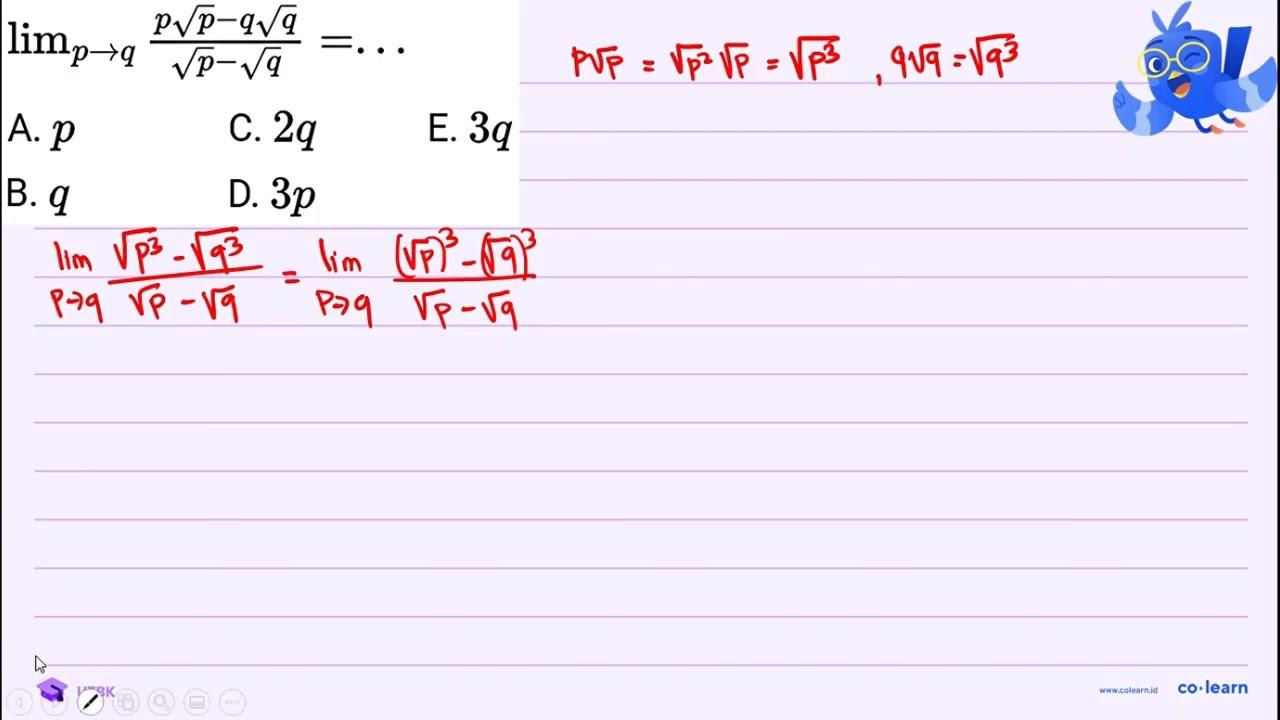 lim_{p→q} \frac{p√p−q√q}{√p−√q} =...
A. p C. 2q E. 3q
B. q D. 3p
p√p = √p² √p = √p³ , q√q = √q³
lim_{p→q} \frac{√p³ - √q³}{√p - √q} = lim_{p→q} \frac{(√p)³ - (√q)³}{√p - √q}
www.colearn.id co·learn